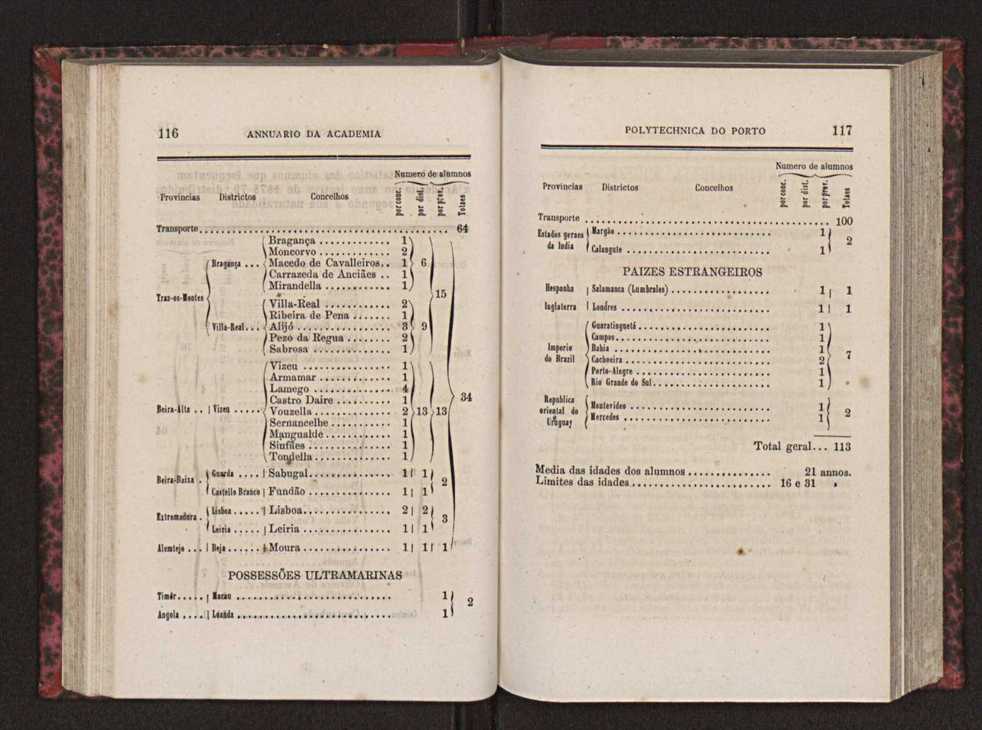 116 ANNUARIO DA ACADEMIA
Numero de alumnos
Provincias Districtos Concelhos por conc. por dist. por prov. Totaes
Transporte 64
Traz-os-Montes Bragança ... Bragança 1 6 15 34
Moncorvo 2
Macedo de Cavalleiros.. 1
Carrazeda de Anciães .. 1
Mirandella 1
Villa-Real... Villa-Real 2 9
Ribeira de Pena 1
Alijó 3
Pezo da Regua 2
Sabrosa 1
Beira-Alta .. Vizeu ..... Vizeu 1 13 13
Armamar 1
Lamego 4
Castro Daire 1
Vouzella 2
Sernancelhe 1
Mangualde 1
Sinfães 1
Tondella 1
Beira-Baixa . Guarda .... Sabugal 1 1 2
Castello Branco Fundão 1 1
Extremadura. Lisboa ..... Lisboa 2 2 3
Leiria ..... Leiria 1 1
Alemtejo ... Beja ...... Moura 1 1 1
POSSESSÕES ULTRAMARINAS
Timôr..... Macau 1 2
Angola .... Loanda 1
POLYTECHNICA DO PORTO 117
Numero de alumnos
Provincias Districtos Concelhos por conc. por dist. por prov. Totaes
Transporte 100
Estados geraes da India Margão 1 2
Calangute 1
PAIZES ESTRANGEIROS
Hespanha Salamanca (Lumbrales) 1 1
Inglaterra Londres 1 1
Imperio do Brazil Guaratinguetá 1 7
Campos 1
Bahia 1
Cachoeira 2
Porto-Alegre 1
Rio Grande do Sul 1
Republica oriental do Uruguay Montevideo 1 2
Mercedes 1
Total geral... 113
Media das idades dos alumnos 21 annos.
Limites das idades 16 e 31 »